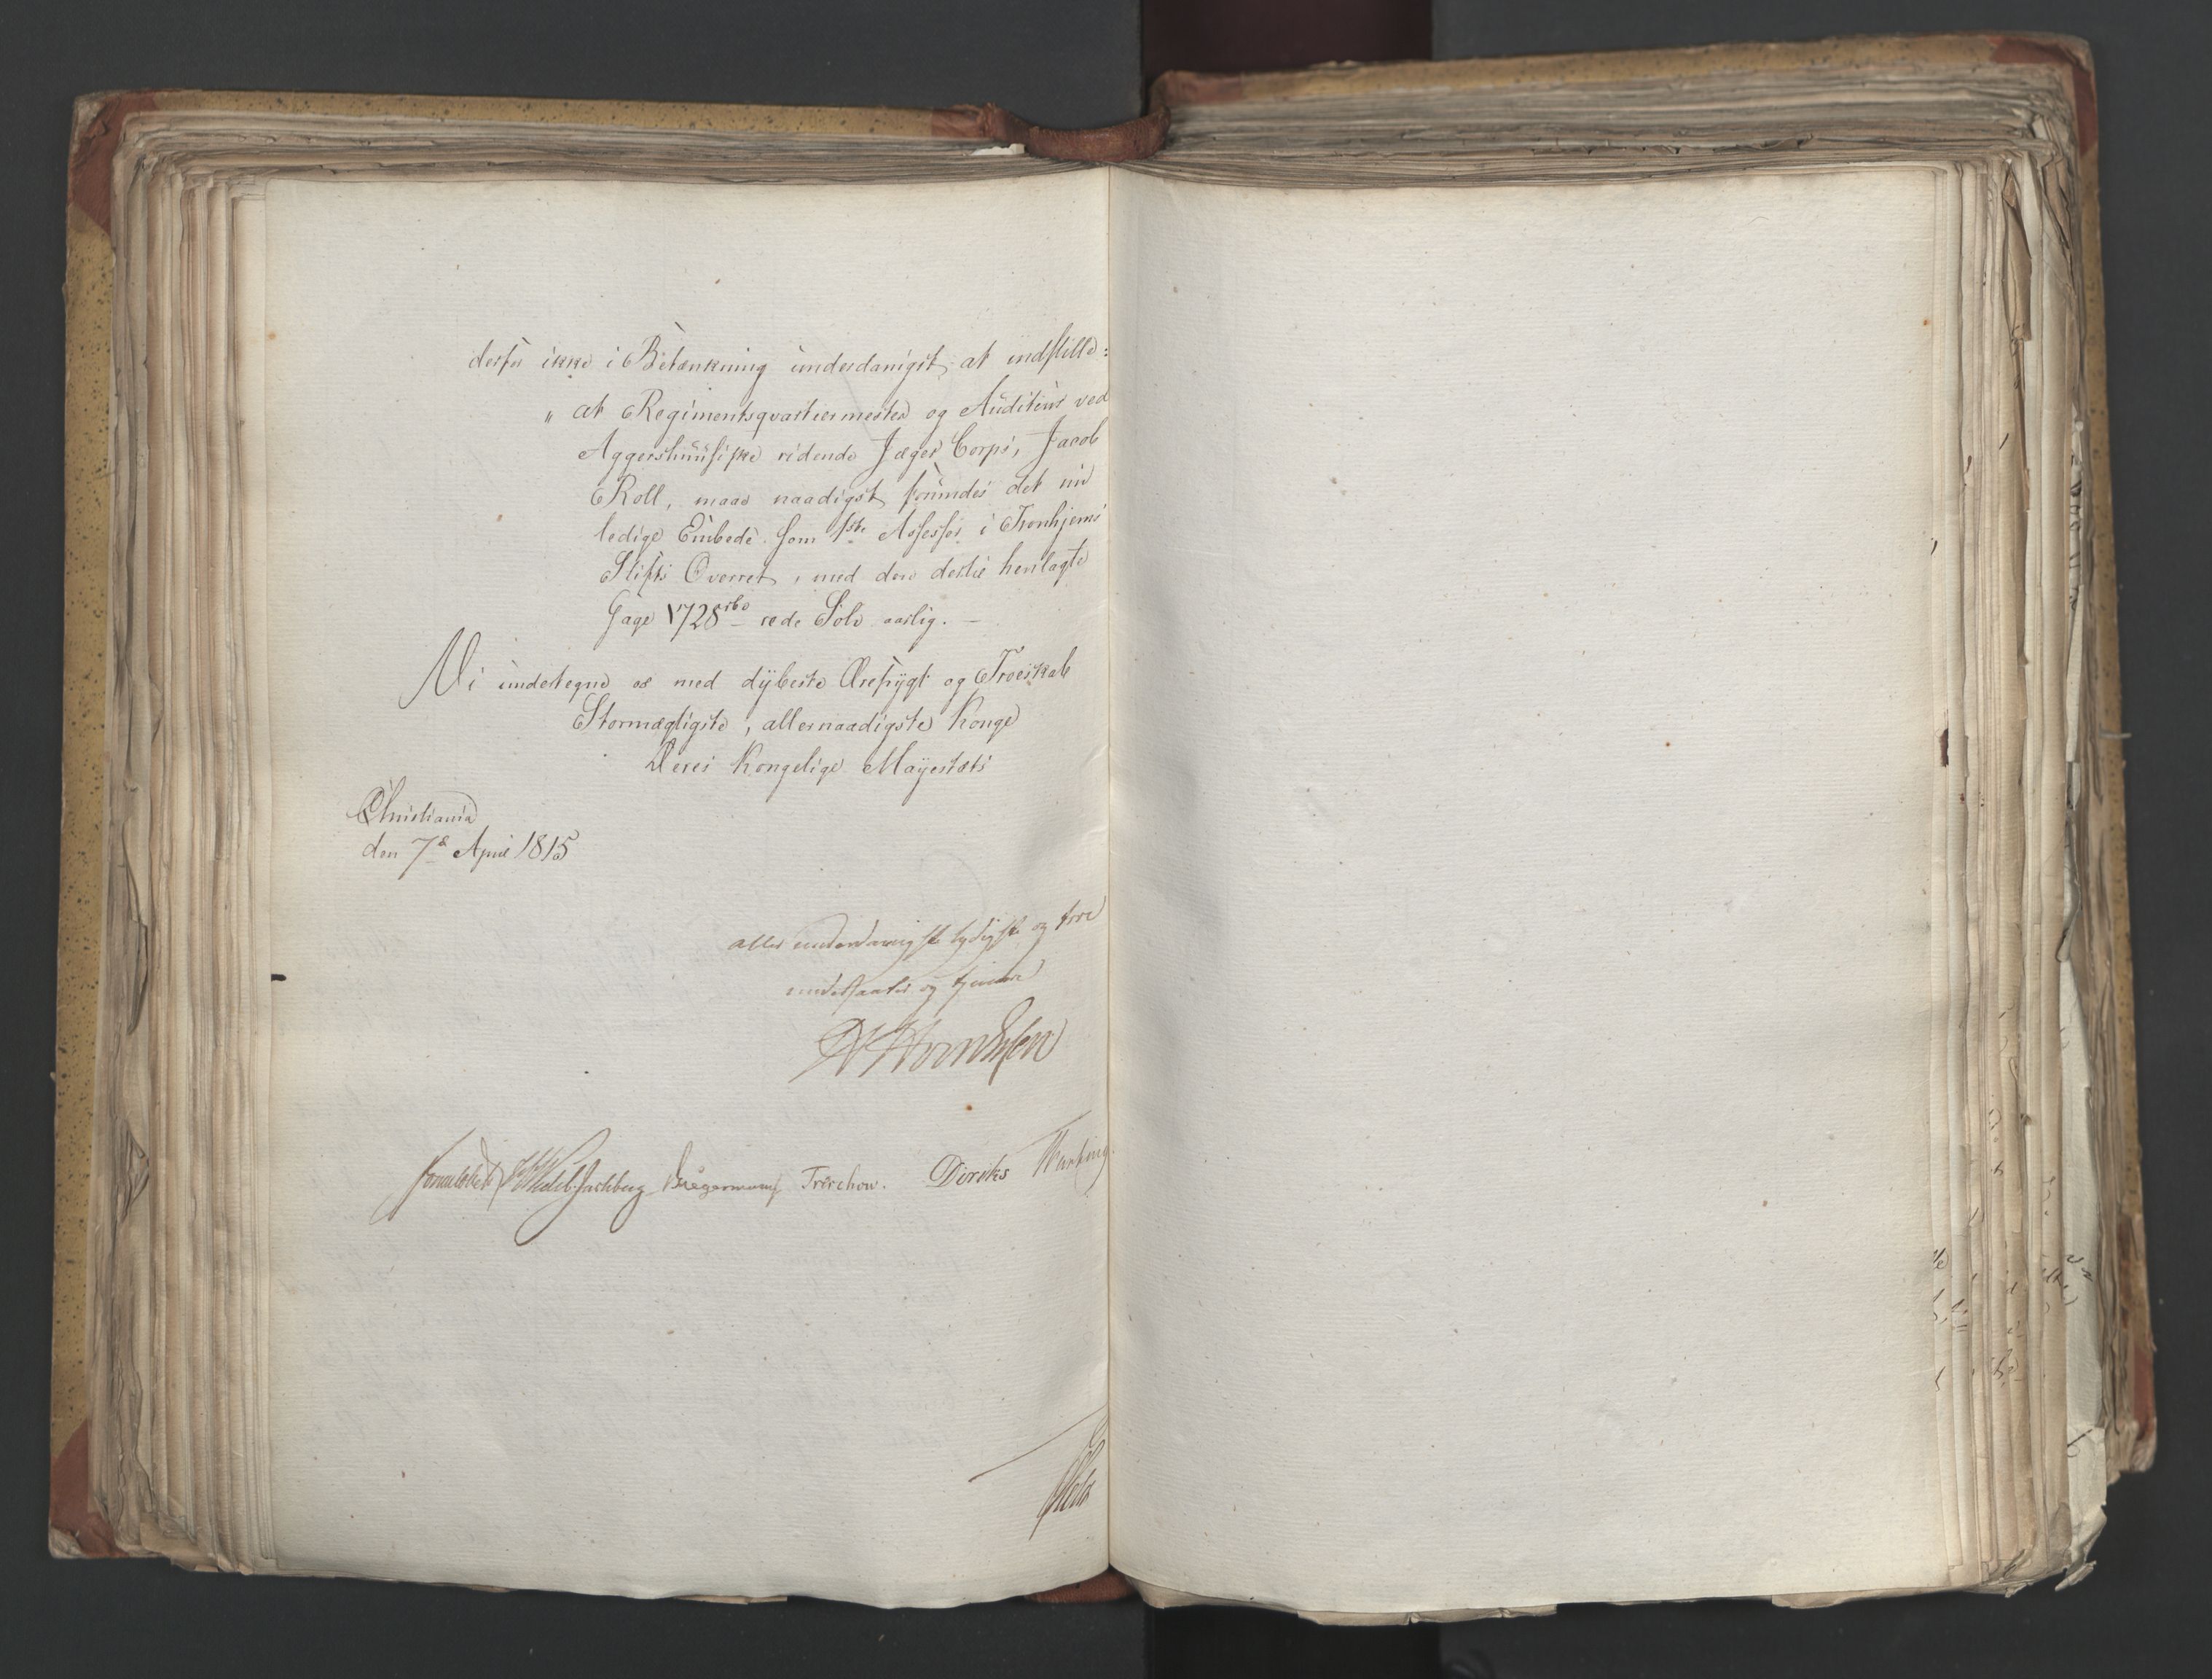 derfor ikke i Betænkning underdanigst at indstille:
" at Regimentsqvarteermester og Auditeur ved
Aggershuusiske ridende Jæger Corps, Jacob
Roll, maae naadigst forundes det nu
ledige Embede som 1ste Assessor i Tronhjems
Stifts Overret, med den dertil henlagte
Gage 1728 rbd rede Sølv aarlig. —
Vi undertegne os med dÿbeste Ærefrÿgt og Troeskab
Stormægtigste, allernaadigste Konge
Deres Kongelige Maÿestæts
Christiania
den 7de April 1815
aller underdanigste lydigste og troe
undersaatter og tjenere
Sommerhielm Wedel Jarlsberg Hegermann Treschow. Diriks